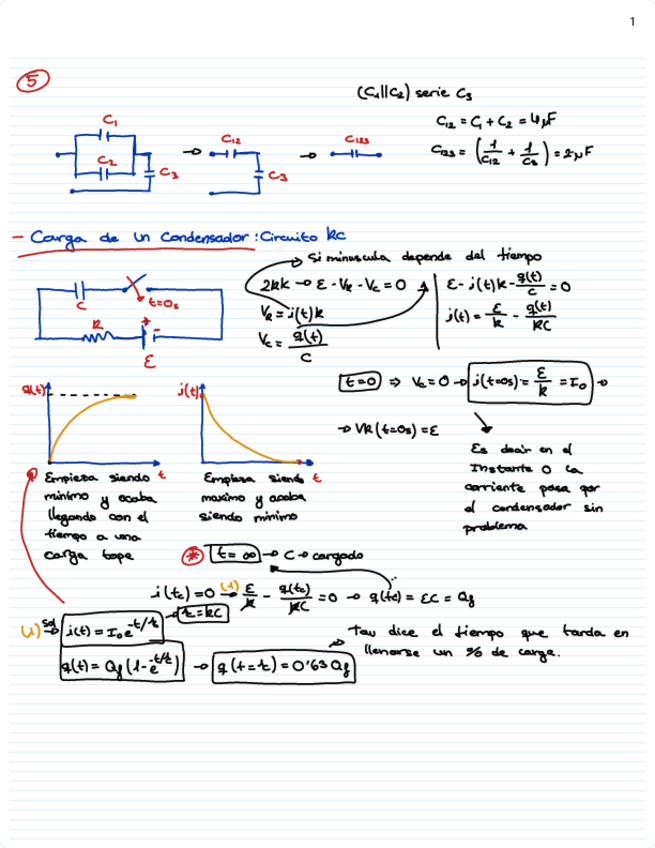 1
5
(C1||C2) serie C3
C1
C12 = C1 + C2 = 4μF
C12
C123
C2
C3
C3
C123 = (1/C12 + 1/C3) = 2μF
- Carga de un condensador: Circuito RC
Si minuscula depende del tiempo
2RK → ε - VR - VC = 0
ε - i(t)R - q(t)/C = 0
C
t=0s
VR = i(t)R
i(t) = ε/R - q(t)/RC
R
+ -
VC = q(t)/C
ε
t=0 ⇒ VC = 0 → i(t=0s) = ε/R = I0 →
q(t)
i(t)
→ VR(t=0s) = ε
t
t
Es decir en el
instante 0 la
corriente pasa por
el condensador sin
problema
Empieza siendo
minimo y acaba
llegando con el
tiempo a una
carga tope
Empieza siendo
maximo y acaba
siendo minimo
* t = ∞ → C → cargado
i(tc) = 0 (1)→ ε/R - q(tc)/RC = 0 → q(tc) = εC = Qf
(1) Sol→ i(t) = I0 e^-t/τ → τ = RC
Tau dice el tiempo que tarda en
llenarse un % de carga.
q(t) = Qf (1-e^-t/τ) → q(t=τ) = 0'63 Qf